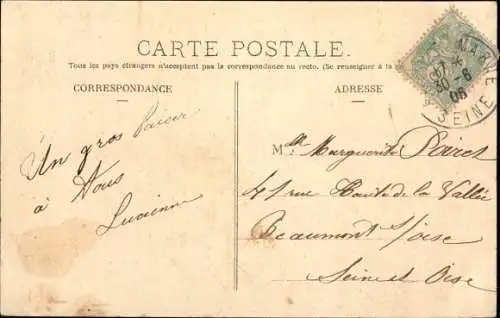 CARTE POSTALE.
Tous les pays étrangers n'acceptent pas la correspondance au recto. (Se renseigner à la
CORRESPONDANCE
ADRESSE
MARNE
30-6
06
SEINE
Un gros baiser
à Vous
Lucienne
Mlle Marguerite
41 rue Haute de la Vallée
Beaumont s/oise
Seine et Oise